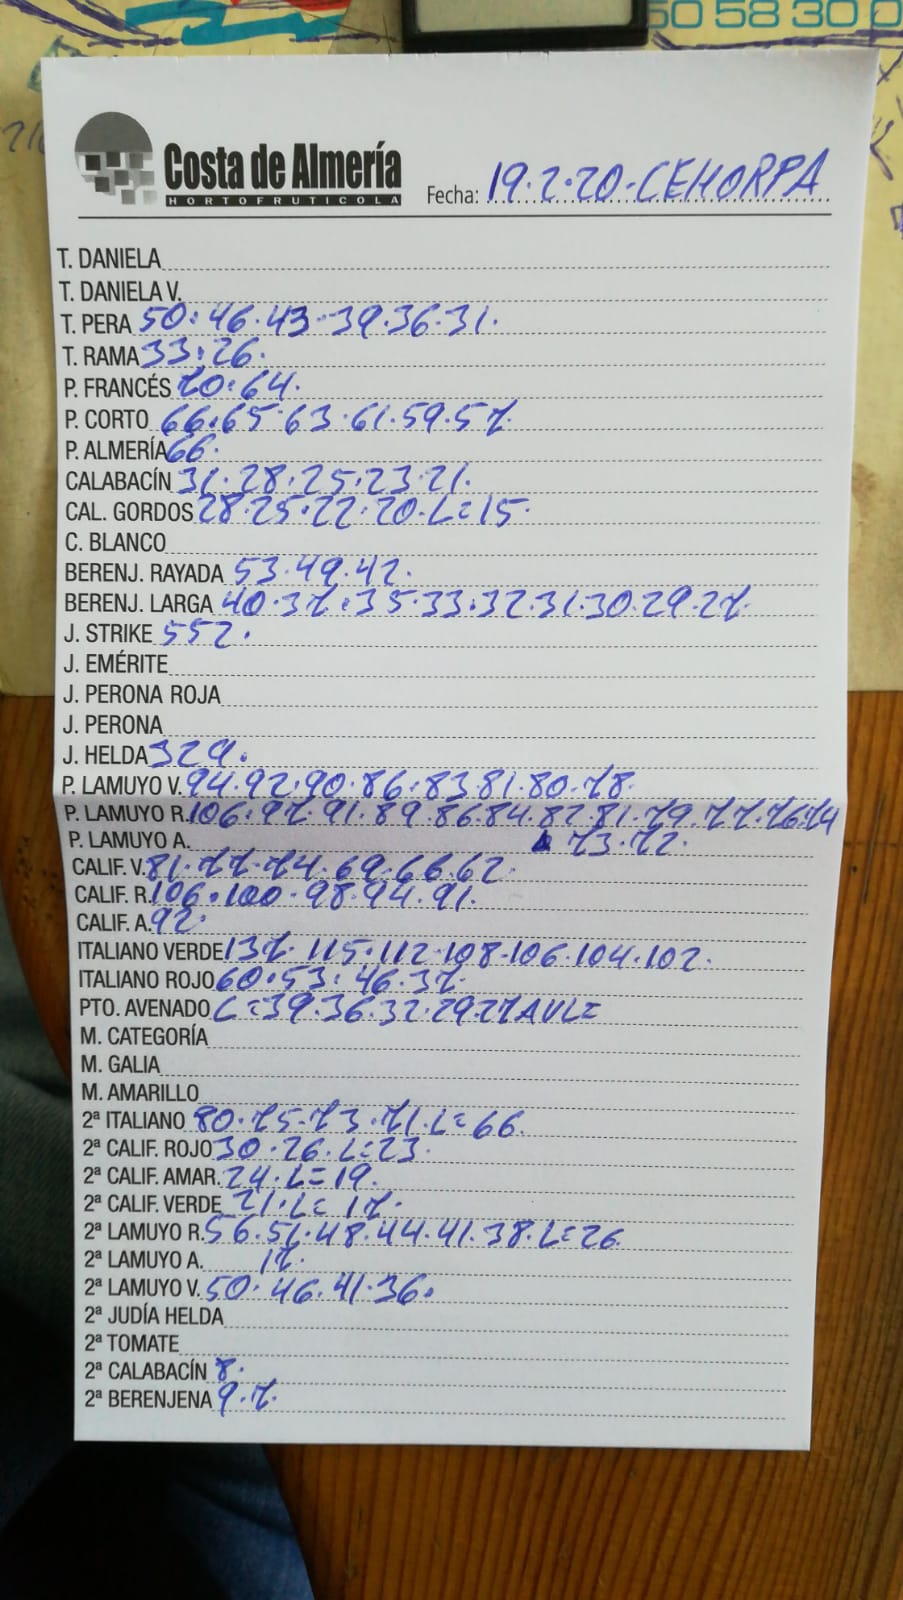 50 58 30 0
Costa de Almería
HORTOFRUTICOLA
Fecha: 19.2.20-CEHORPA
T. DANIELA
T. DANIELA V.
T. PERA 50.46.43.39.36.31.
T. RAMA 33.26.
P. FRANCÉS 70.64.
P. CORTO 66.65.63.61.59.57
P. ALMERÍA 66.
CALABACÍN 31.28.25.23.21.
CAL. GORDOS 28.25.22.20.L=15.
C. BLANCO
BERENJ. RAYADA 53.49.42.
BERENJ. LARGA 40.37.35.33.32.31.30.29.27.
J. STRIKE 552.
J. EMÉRITE
J. PERONA ROJA
J. PERONA
J. HELDA 329.
P. LAMUYO V. 94.92.90.86.83.81.80.78.
P. LAMUYO R. 106.97.91.89.86.84.82.81.79.77.76.74
P. LAMUYO A. 73.72.
CALIF. V. 81.77.74.69.66.62.
CALIF. R. 106.100.98.94.91.
CALIF. A. 92.
ITALIANO VERDE 137.115.112.108.106.104.102.
ITALIANO ROJO 60.53.46.37.
PTO. AVENADO L=39.36.32.29.27AVL=
M. CATEGORÍA
M. GALIA
M. AMARILLO
2ª ITALIANO 80.75.73.71.L=66.
2ª CALIF. ROJO 30.26.L=23.
2ª CALIF. AMAR. 24.L=19.
2ª CALIF. VERDE 21.L=17.
2ª LAMUYO R. 56.51.48.44.41.38.L=26
2ª LAMUYO A. 17.
2ª LAMUYO V. 50.46.41.36.
2ª JUDÍA HELDA
2ª TOMATE
2ª CALABACÍN 8.
2ª BERENJENA 9.7.